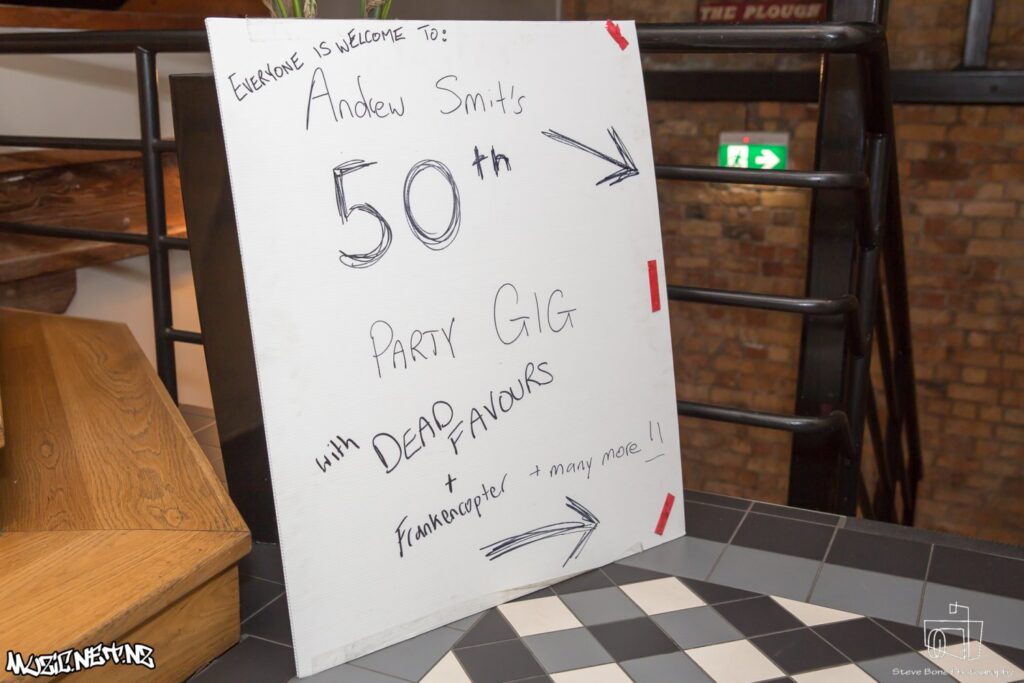 THE PLOUGH
EVERYONE IS WELCOME TO:
Andrew Smit's
50th
PARTY GIG
with DEAD FAVOURS
+
Frankencopter + many more!!
MUZIC.NET.NZ
Steve Bone Photography